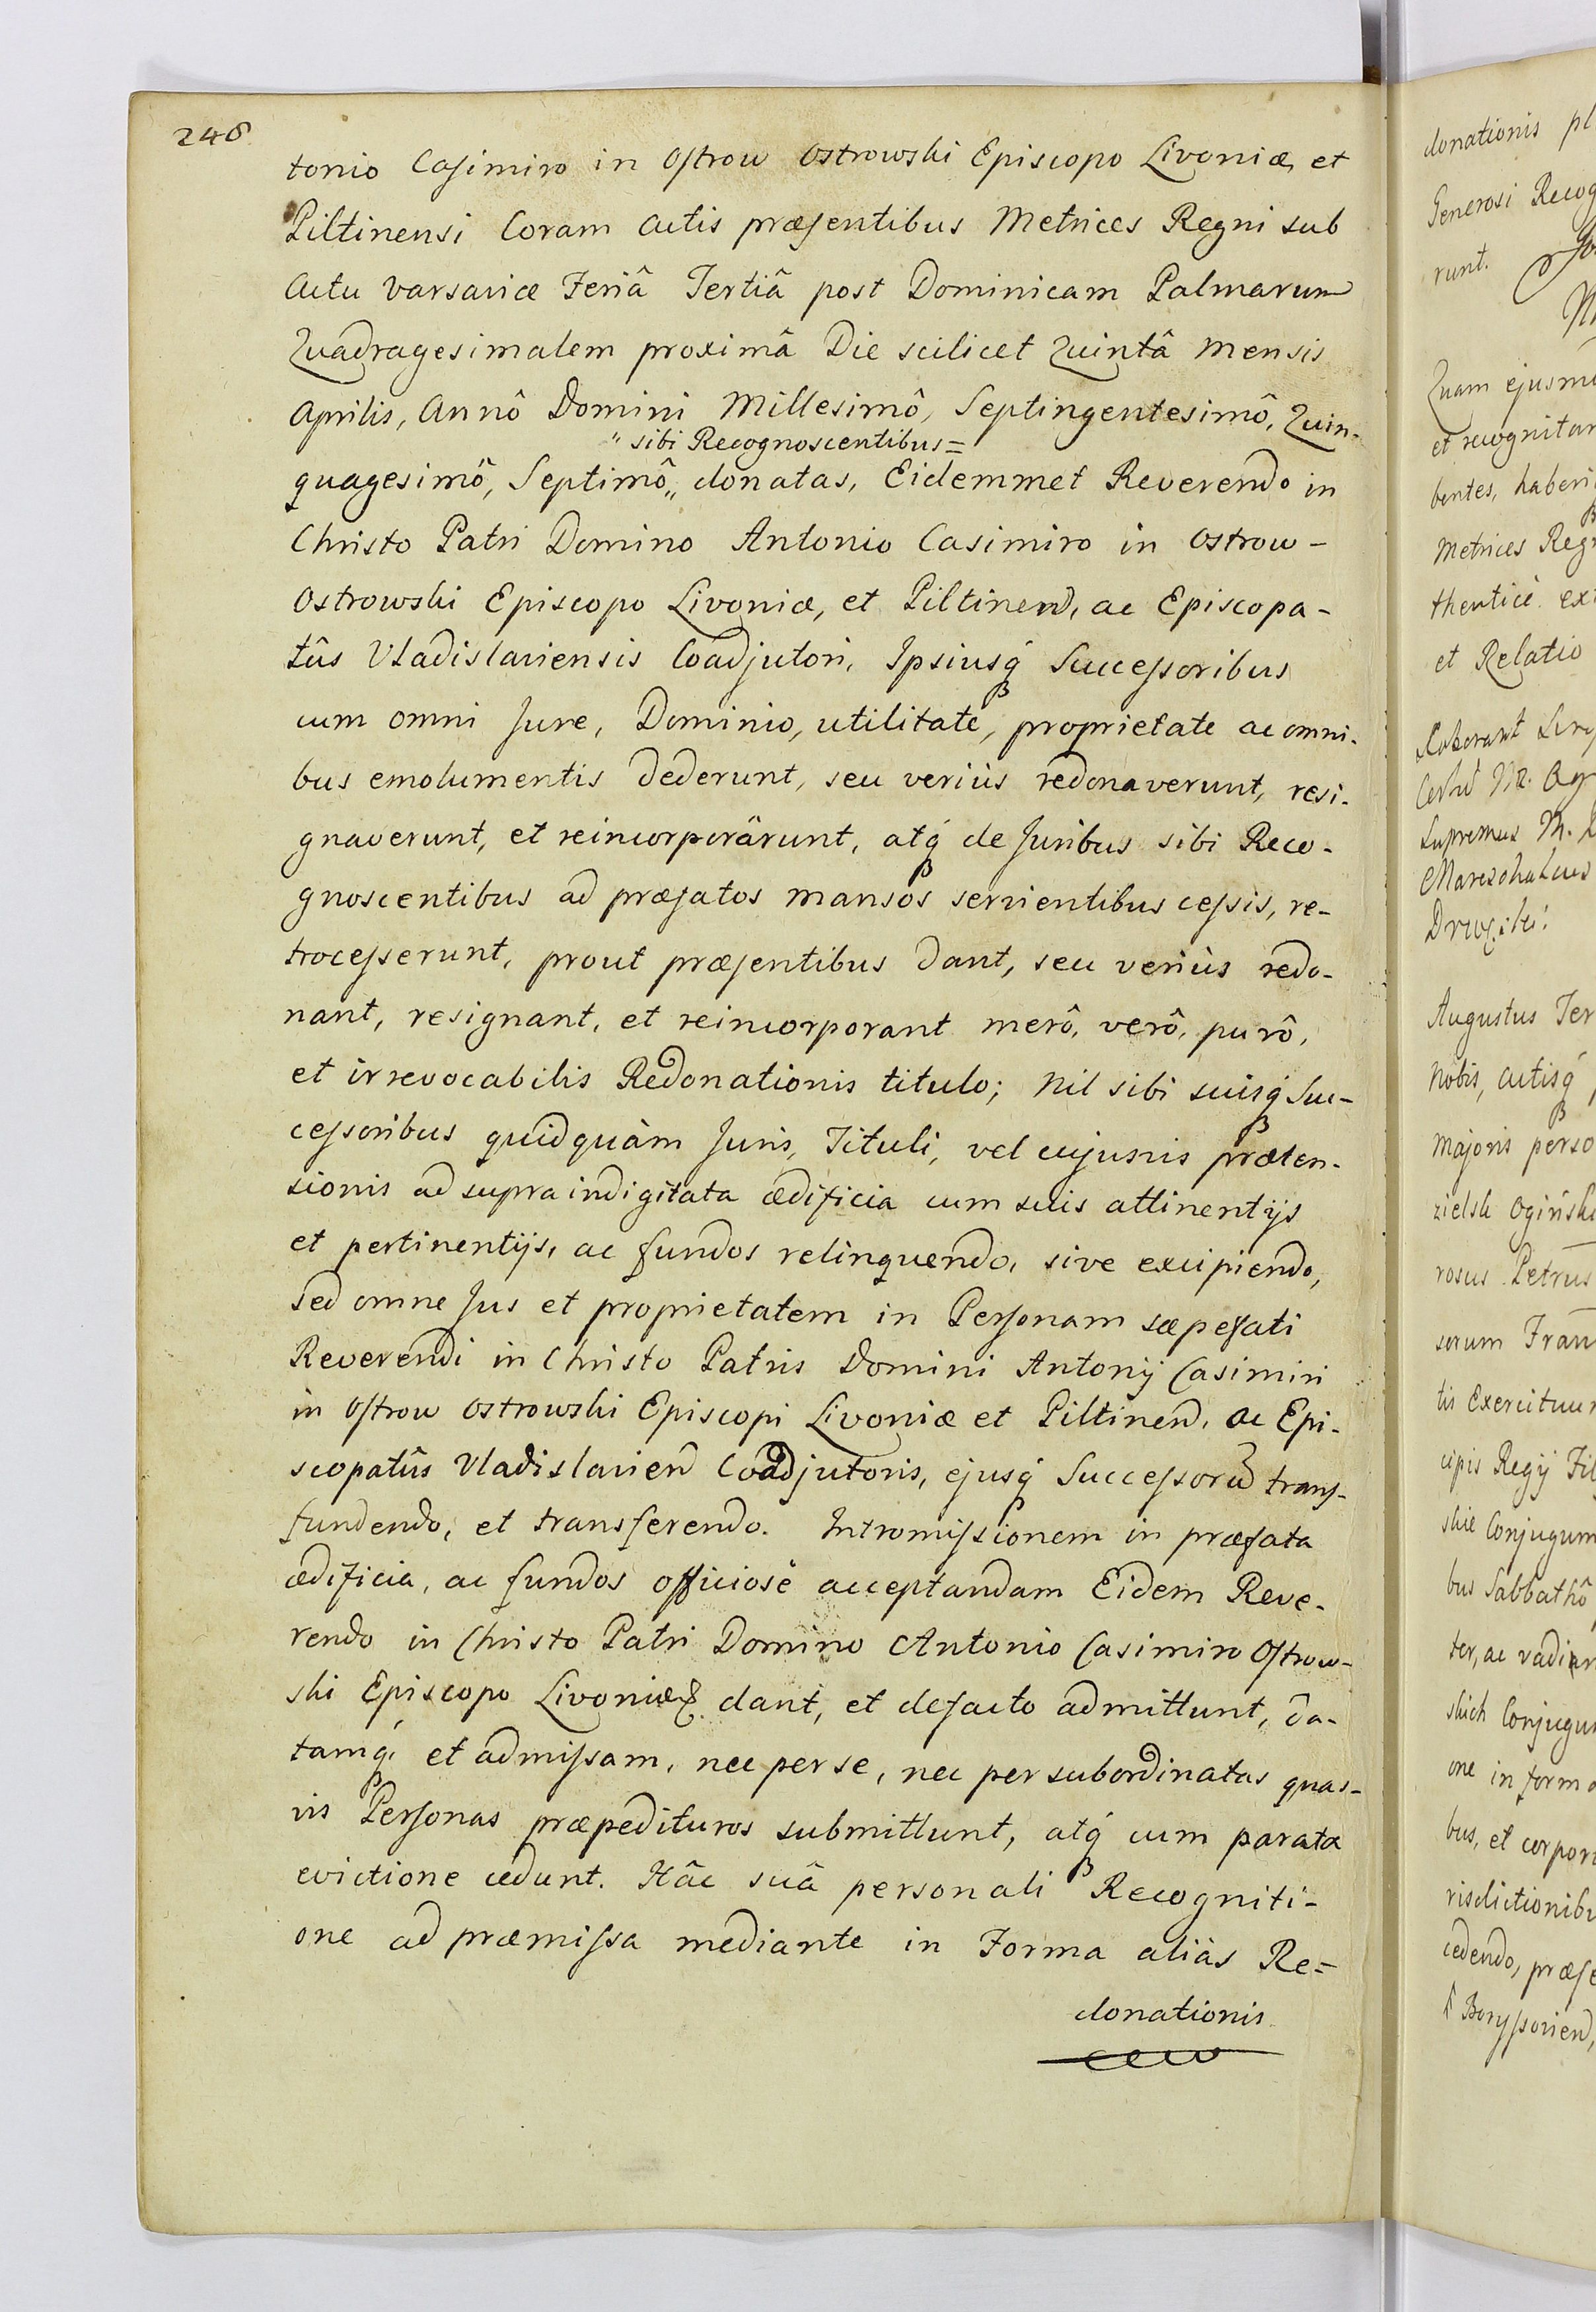 248
tonio Casimiro in Ostrow Ostrowski Episcopo Livoniæ, et
Piltinensi Coram Actis præsentibus Metrices Regni sub
Actu Varsaviæ Feriâ Tertiâ post Dominicam Palmarum
Quadragesimalem proximâ Die scilicet Quintâ Mensis
Aprilis, Annô Domini Millesimô, Septingentesimô, Quin-
„ sibi Recognoscentibus =
quagesimô, Septimô „ donatas, Eidemmet Reverendo in
Christo Patri Domino Antonio Casimiro in Ostrow -
Ostrowski Episcopo Livoniæ, et Piltinen̄, ac Episcopa-
tûs Vladislaviensis Coadjutori, Ipsiusq́ Successoribus
cum omni Jure, Dominio, utilitate, proprietate ac omni-
bus emolumentis dederunt, seu veriùs redonaverunt, resi-
gnaverunt, et reincorporârunt, atq́ de Juribus sibi Reco-
gnoscentibus ad præfatos mansos servientibus cessis, re-
trocesserunt, prout præsentibus dant, seu veriùs redo-
nant, resignant, et reincorporant merô, verô, purô,
et irrevocabilis Redonationis titulo; Nil sibi suisq́ Suc-
cessoribus quidquàm Juris, Tituli, vel cujusvis præten-
sionis ad supra indigitata ædificia cum suis attinentijs
et pertinentijs, ac fundos relinquendo, sive excipiendo,
sed omne Jus et proprietatem in Personam sæpefati
Reverendi in Christo Patris Domini Antonij Casimiri
in Ostrow Ostrowski Episcopi Livoniæ et Piltinen̄, ac Epi-
scopatûs Vladislavien̄ Coadjutoris, ejusq́ Successorum̄ trans-
fundendo, et transferendo. Intromissionem in præfata
ædificia, ac fundos officiosè acceptandam Eidem Reve-
rendo in Christo Patri Domino Antonio Casimiro Ostrow-
ski Episcopo Livoniæ &. dant, et defacto admittunt, da-
tamq́, et admissam, nec per se, nec per subordinatas quas-
vis Personas præpedituros submittunt, atq́ cum parata
evictione cedunt. Hâc suâ personali Recogniti-
one ad præmissa mediante in Forma aliàs Re=
donationis
donationis pl
Generosi Recog
runt.
Quam ejusmo
et recognitam
bentes, haberi
Metrices Regn
thenticè ex
et Relatio
Augustus Ter
Nobis, actisq́
Majoris perso
zielsk Ogiński
rosus Petrus
sorum Fran
tis Exercituum
cipis Regij Fil
skie Conjugum
bus Sabbathô
ter, ac vadi
skich Conjugum
one in forma
bus, et corpor
risdictionibu
cedendo, præse